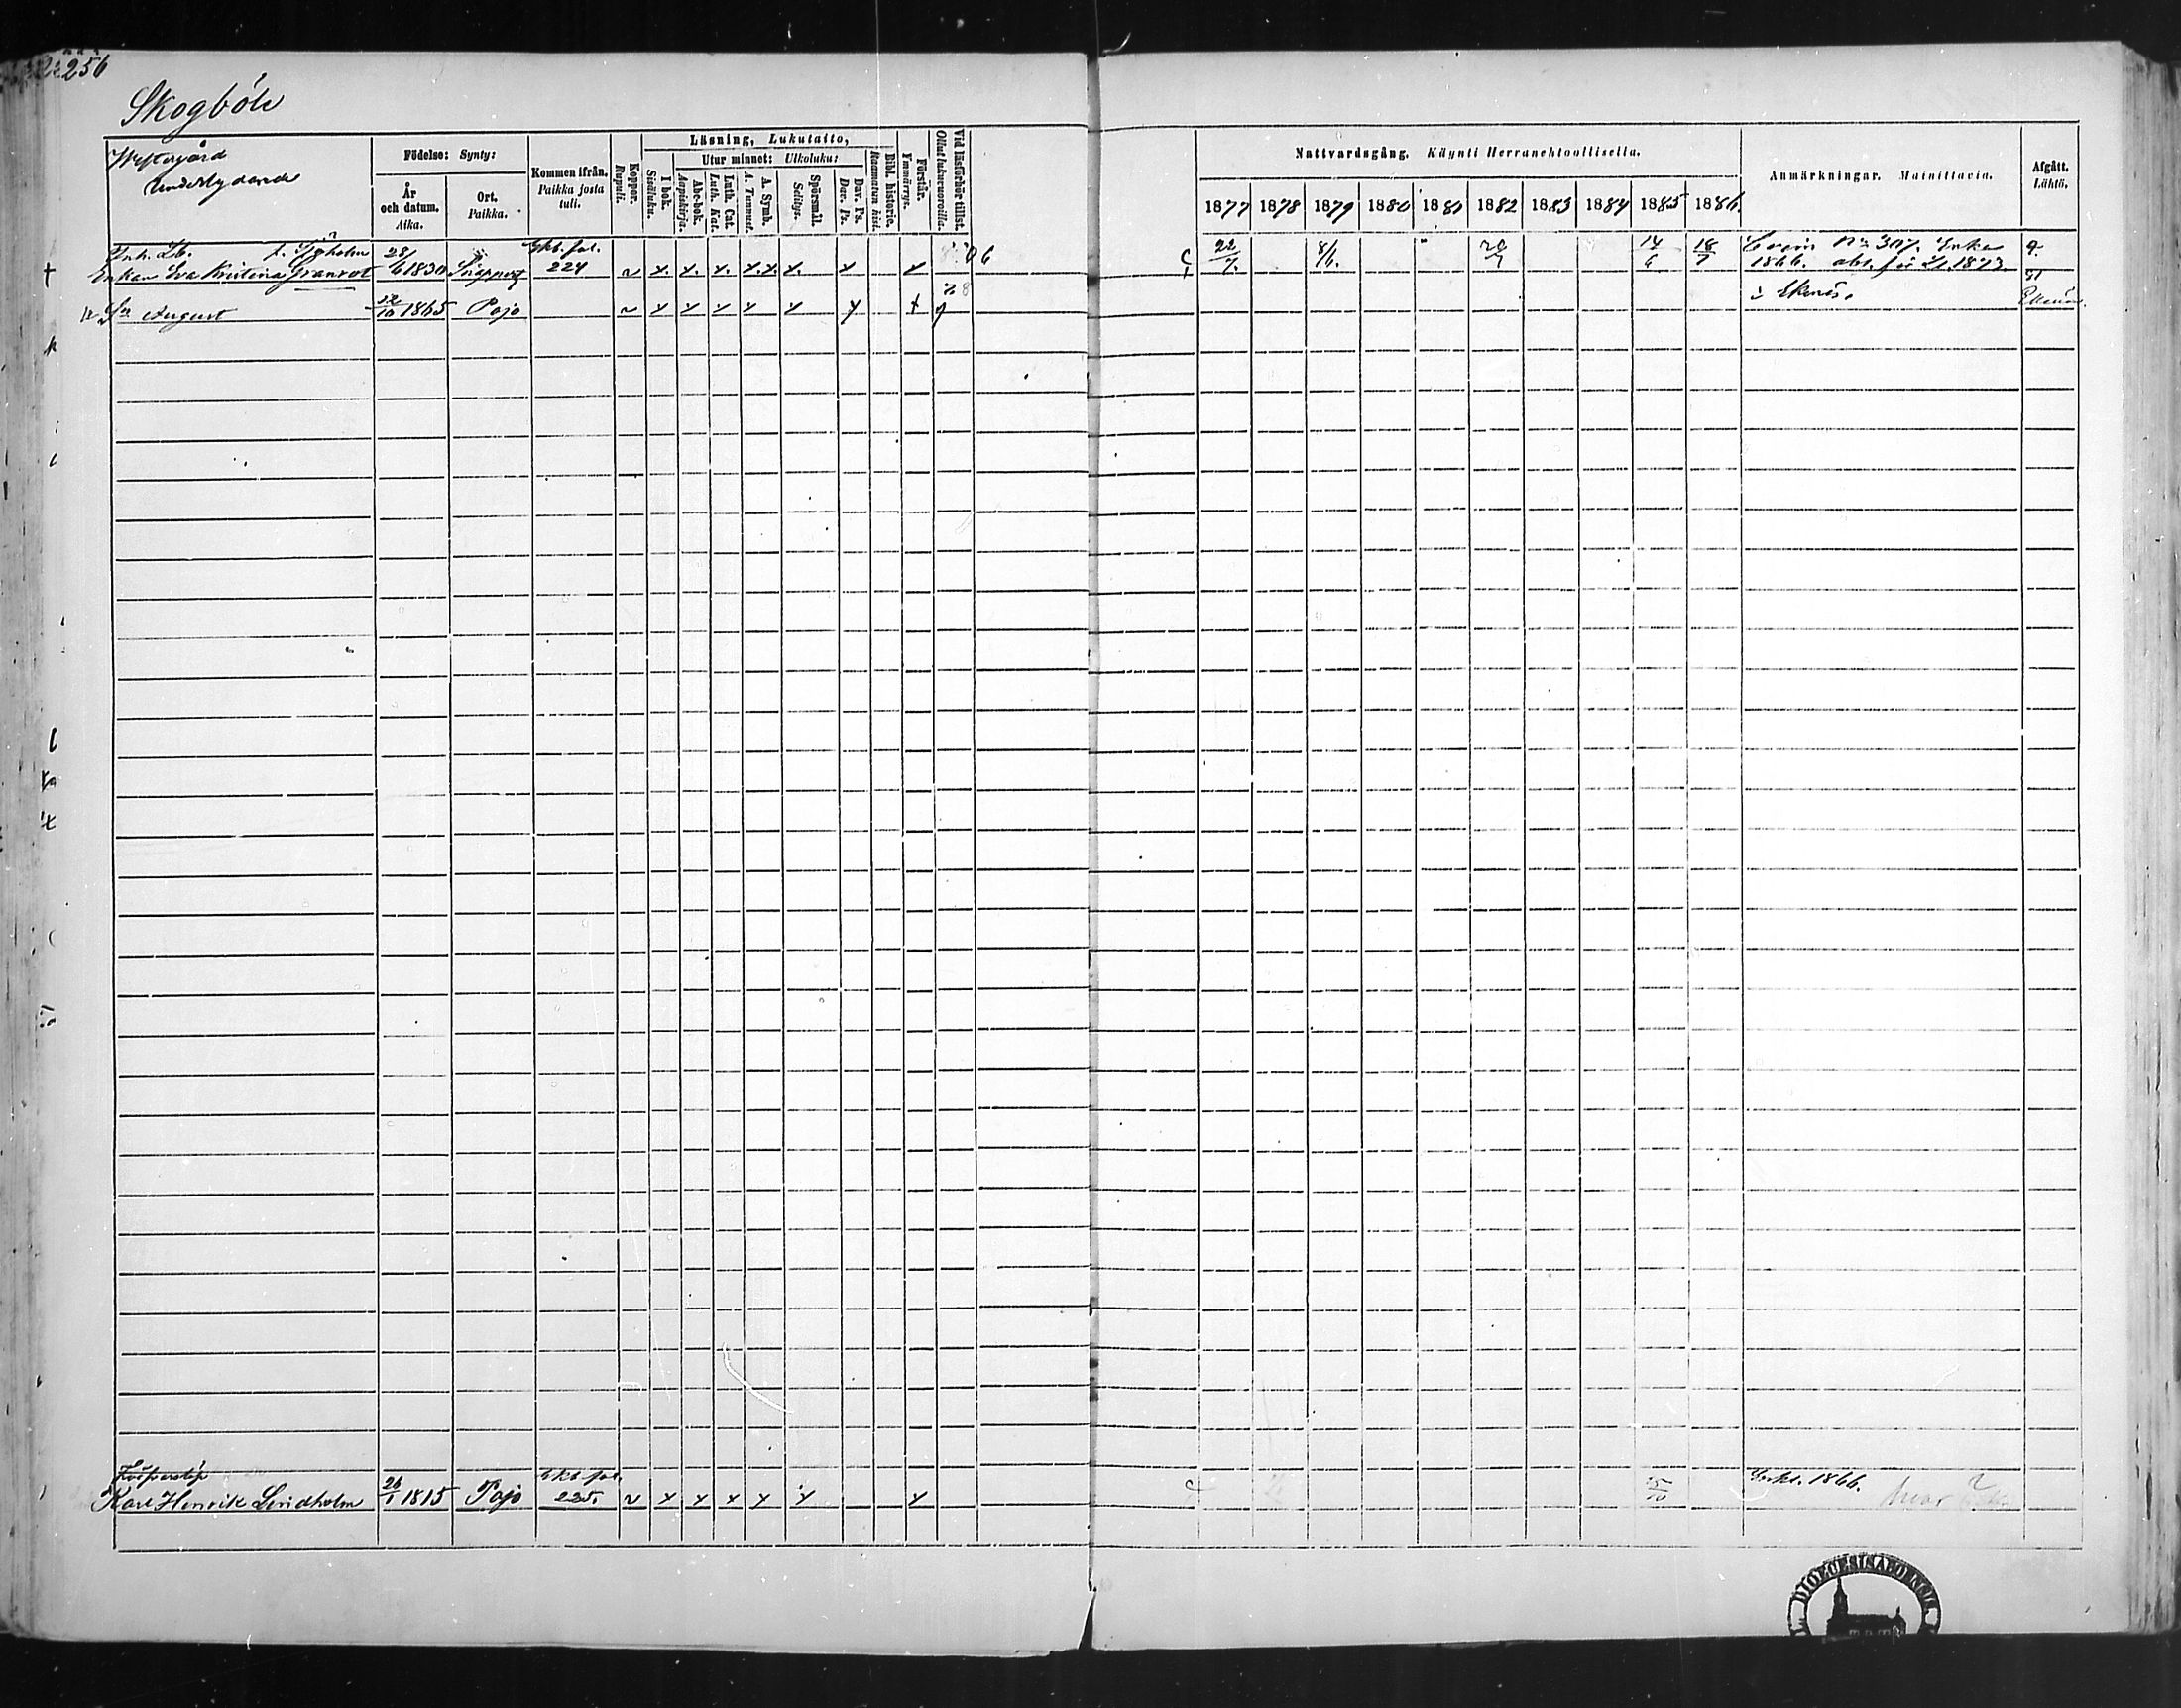 256
Skogböle
Westergård
underlydande
Födelse: Synty:
År och datum. Aika.
Ort. Paikka.
Kommen ifrån. Paikka josta tuli.
Koppor. Rupuli.
Läsning, Lukutaito,
I bok. Sisäluku.
Utur minnet: Ulkoluku:
Abc-bok. Aapiskirja.
Luth. Cat. Luth. Kat.
A. Symb. A. Tunnust.
Spörsmål. Selitys.
Dav. Ps. Dav. Ps.
Bibl. historie. Raamatun hist.
Förstår. Ymmärrys.
Vid läsförhör tillst. Ollut lukuvuoroilla.
Nattvardsgång. Käynti Herranehtoollisella.
1877 1878 1879 1880 1881 1882 1883 1884 1885 1886.
Anmärkningar. Mainittavia.
Afgått. Lähtö.
Inh. Sjöholm 28/6 1830 Kkb. fol. 224
Enkan Eva Kristina Granrot
22/7. 8/6. 14/6 18/7
No 307. Enka
1866. abs. för 1873
i Ekenäs.
Sn August 12/10 1865 Pojo
Ekenäs.
Karl Henrik Lindholm 26/1 1815 Pojo Kkb fol. 225.
15/10
Enkl. 1866.
DIOECESIS ABOENSIS